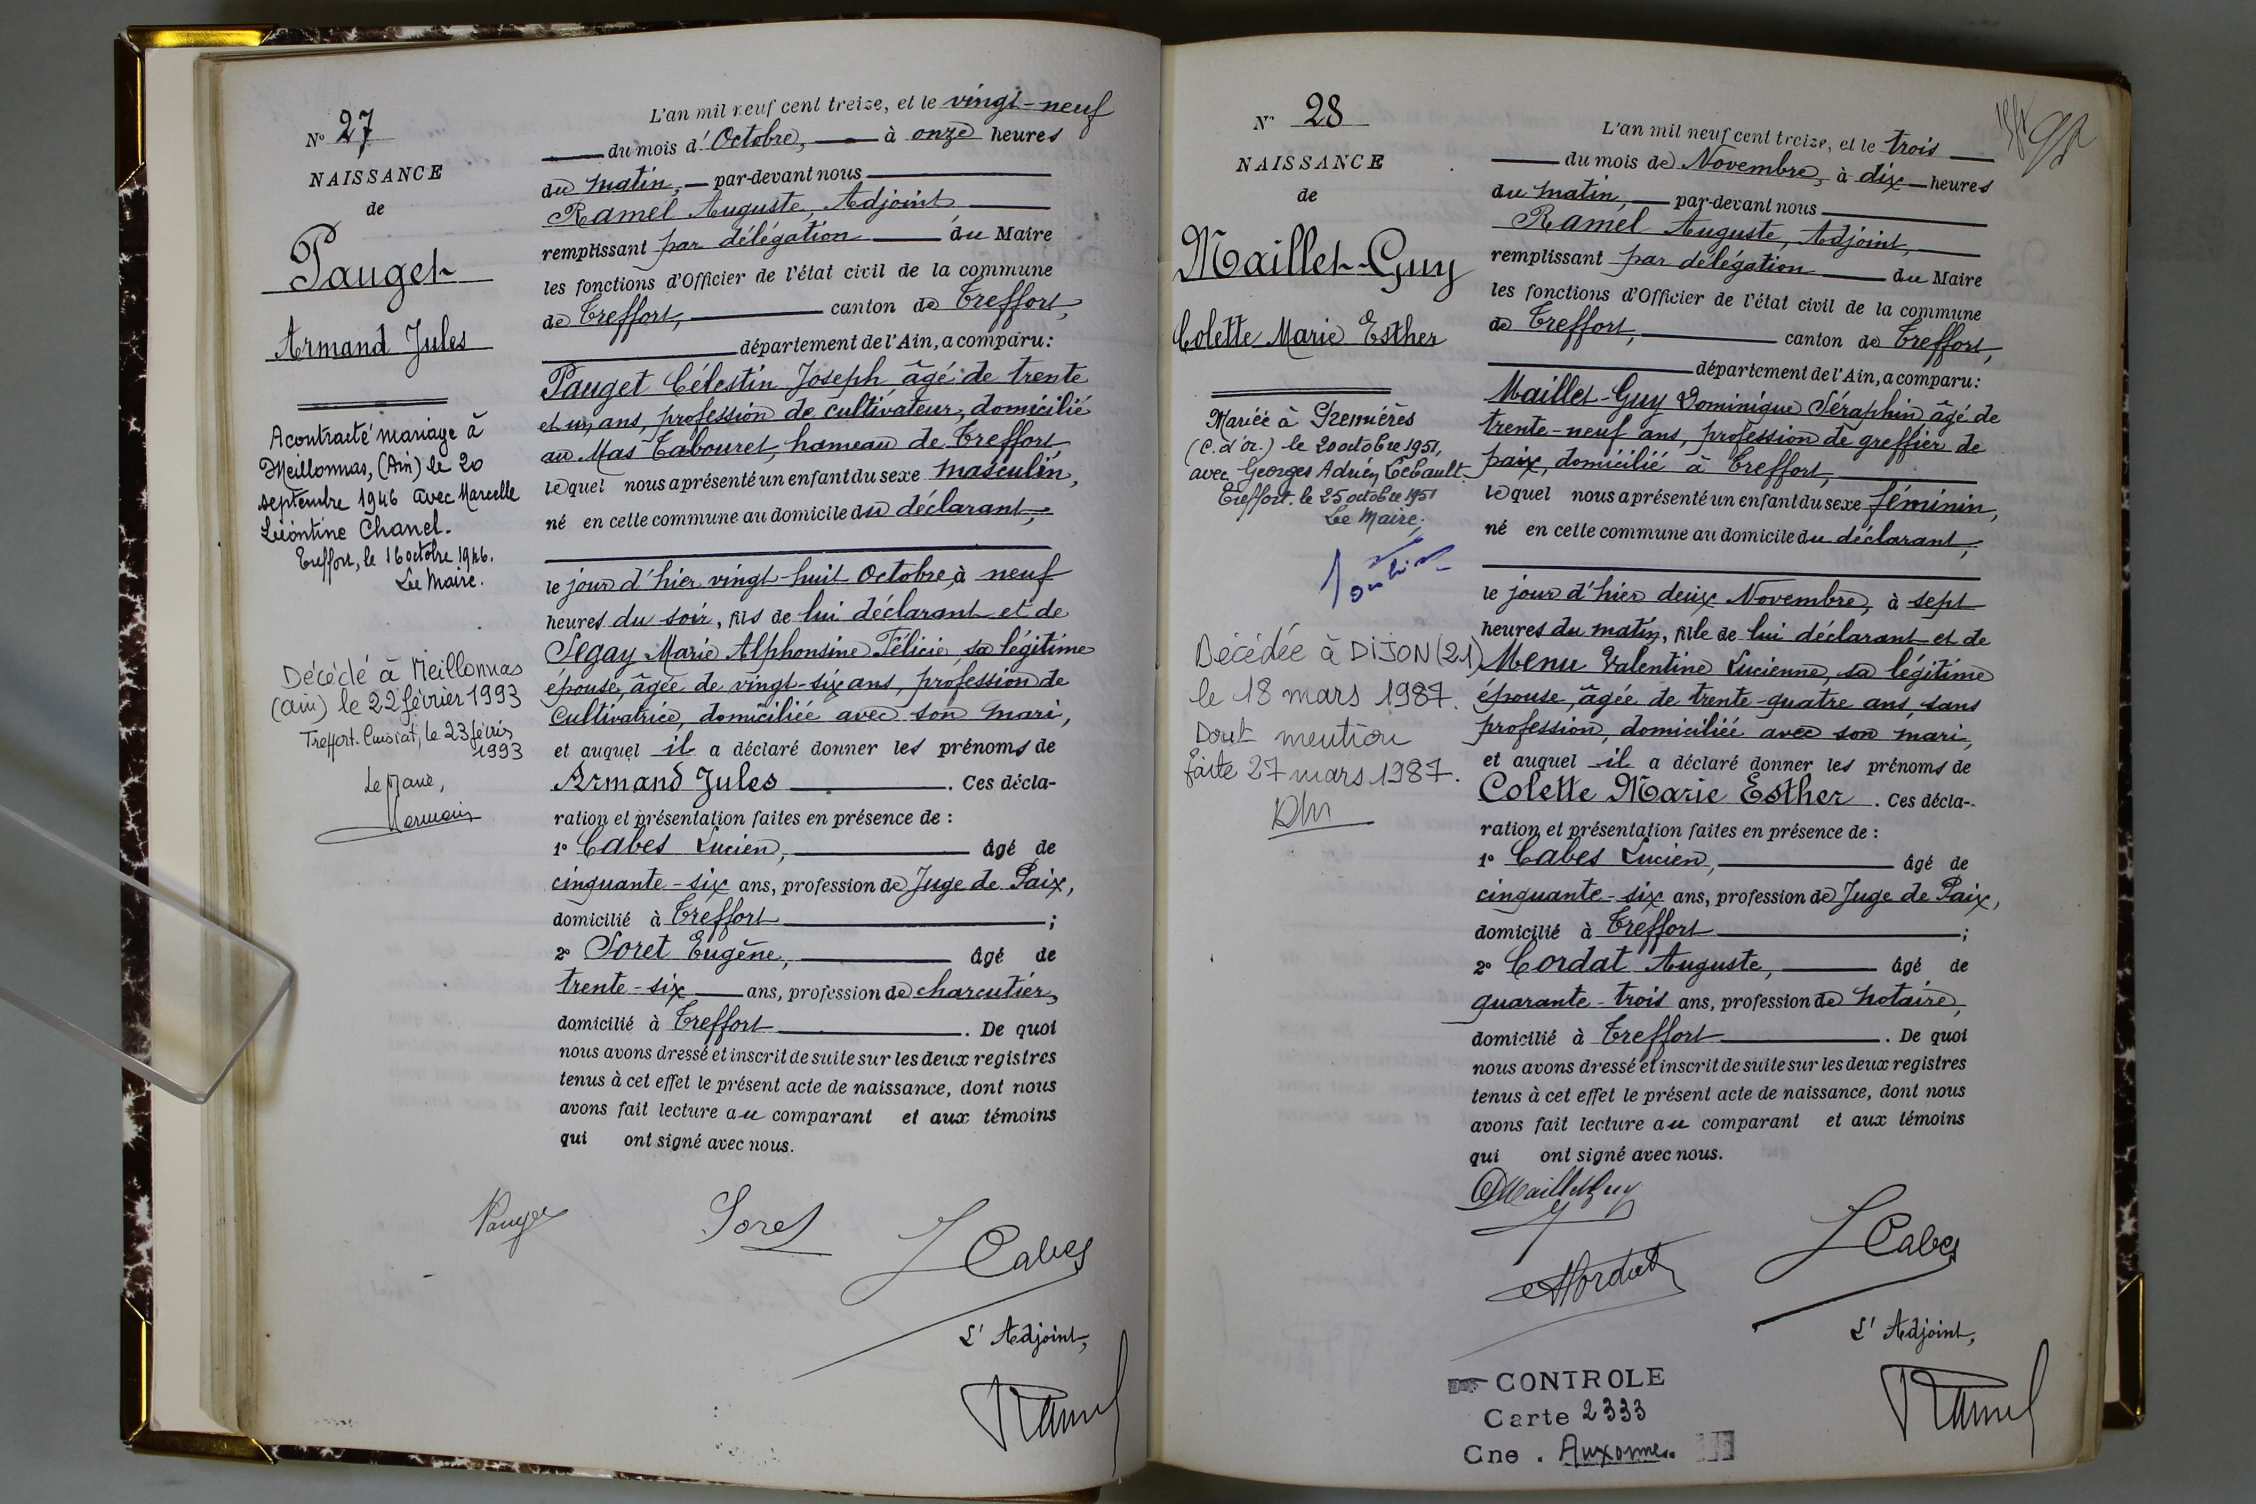 N° 27
NAISSANCE
de
Pauget
Armand Jules
A contracté mariage à
Meillonnas, (Ain) le 20
septembre 1946 avec Marcelle
Léontine Chanel.
Treffort, le 16 octobre 1946.
Le Maire.
Décédé à Meillonnas
(ain) le 22 février 1993
Treffort-Cuisiat, le 23 février
1993
Le Maire,
L'an mil neuf cent treize, et le vingt-neuf
du mois d'Octobre, à onze heures
du matin, par-devant nous
Ramel Auguste, Adjoint
remplissant par délégation du Maire
les fonctions d'Officier de l'état civil de la commune
de Treffort, canton de Treffort,
département de l'Ain, a comparu:
Pauget Célestin Joseph âgé de trente
et un ans, profession de cultivateur, domicilié
au Mas Tabouret, hameau de Treffort
lequel nous a présenté un enfant du sexe masculin,
né en cette commune au domicile du déclarant,
le jour d'hier vingt-huit Octobre, à neuf
heures du soir, fils de lui déclarant et de
Segay Marie Alphonsine Félicie, sa légitime
épouse, âgée de vingt-six ans, profession de
cultivatrice, domiciliée avec son mari,
et auquel il a déclaré donner les prénoms de
Armand Jules. Ces décla-
ration et présentation faites en présence de :
1° Cabes Lucien, âgé de
cinquante-six ans, profession de Juge de Paix,
domicilié à Treffort ;
2° Soret Eugène, âgé de
trente-six ans, profession de charcutier,
domicilié à Treffort. De quoi
nous avons dressé et inscrit de suite sur les deux registres
tenus à cet effet le présent acte de naissance, dont nous
avons fait lecture au comparant et aux témoins
qui ont signé avec nous.
Pauget Soret L Cabes
L'Adjoint,
Ramel
N° 28
NAISSANCE
de
Maillet-Guy
Colette Marie Esther
Mariée à Premières
(C. d'or.) le 20 octobre 1951,
avec Georges Adrien
Treffort. le 25 octobre 1951
Le Maire,
Décédée à DIJON (21)
le 18 mars 1987.
Dont mention
faite 27 mars 1987.
L'an mil neuf cent treize, et le trois
du mois de Novembre, à dix heures
du matin, par-devant nous
Ramel Auguste, Adjoint,
remplissant par délégation du Maire
les fonctions d'Officier de l'état civil de la commune
de Treffort, canton de Treffort,
département de l'Ain, a comparu:
Maillet-Guy Dominique Séraphin âgé de
trente-neuf ans, profession de greffier de
paix, domicilié à Treffort,
lequel nous a présenté un enfant du sexe féminin,
né en cette commune au domicile du déclarant,
le jour d'hier deux Novembre, à sept
heures du matin, fille de lui déclarant et de
Menu Valentine Lucienne, sa légitime
épouse, âgée de trente-quatre ans, sans
profession, domiciliée avec son mari,
et auquel il a déclaré donner les prénoms de
Colette Marie Esther. Ces décla-
ration et présentation faites en présence de :
1° Cabes Lucien, âgé de
cinquante-six ans, profession de Juge de Paix,
domicilié à Treffort ;
2° Cordat Auguste, âgé de
quarante-trois ans, profession de notaire,
domicilié à Treffort. De quoi
nous avons dressé et inscrit de suite sur les deux registres
tenus à cet effet le présent acte de naissance, dont nous
avons fait lecture au comparant et aux témoins
qui ont signé avec nous.
DMailletGuy
L Cabes
ACordat
L'Adjoint,
Ramel
CONTROLE
Carte 2333
Cne. Auxonne